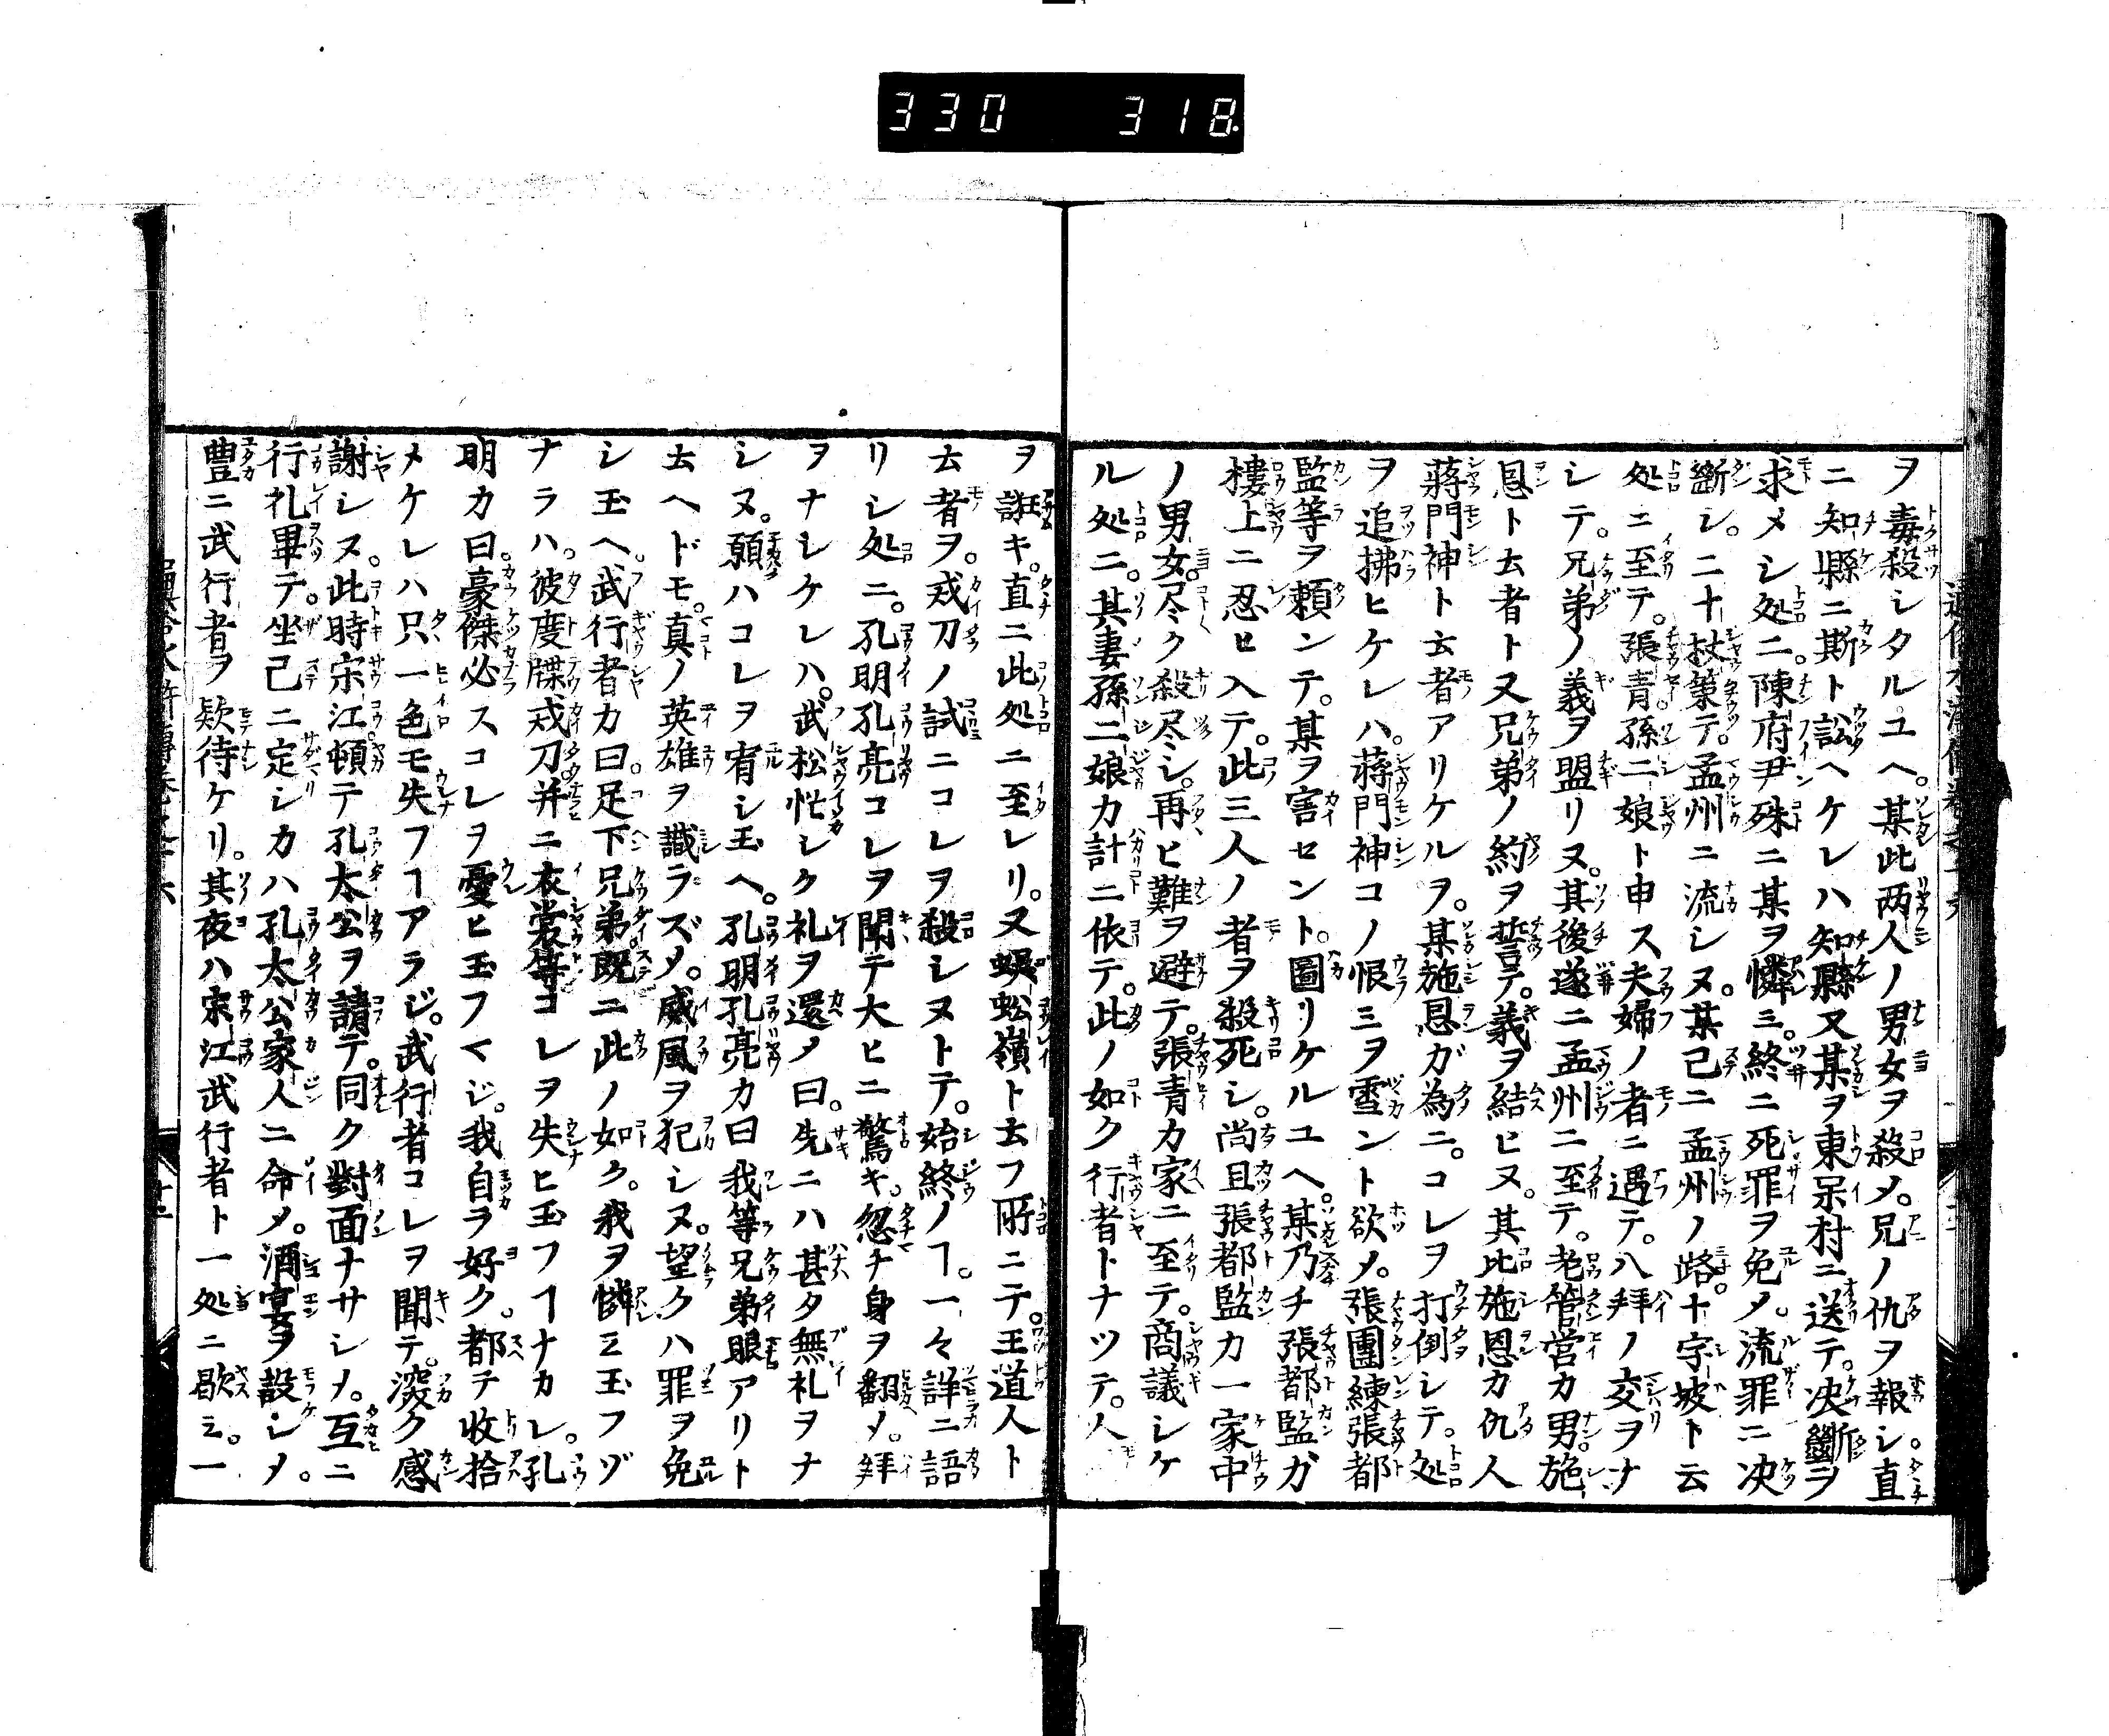 330 318
ヲ毒殺シタルユヘ。某此两人ノ男女ヲ殺メ。兄ノ仇ヲ報シ。直
ニ知縣ニ斯ト訟ヘケレハ知縣又某ヲ東杲村ニ送テ。决斷ヲ
求メシ処ニ。陳府尹殊ニ某ヲ憐ミ。終ニ死罪ヲ免メ。流罪ニ决
斷シ。二十杖策テ。孟州ニ流シヌ。某已ニ孟州ノ路。十字坡ト云
処ニ至テ。張青。孫二娘ト申ス夫婦ノ者ニ遇テ。八拜ノ交ヲナ
シテ。兄弟ノ義ヲ盟リヌ。其後遂ニ孟州ニ至テ。老管営カ男。施
恩ト云者ト又兄弟ノ約ヲ誓テ。義ヲ結ヒヌ。其比施恩カ仇人
蔣門神ト云者アリケルヲ。某施恩ガ為ニ。コレヲ打倒シテ。処
ヲ追拂ヒケレハ。蔣門神コノ恨ミヲ雪ント欲メ。張團練張都
監等ヲ頼ンテ。某ヲ害セント。圖リケルユヘ。某乃チ張都監ガ
樓上ニ忍ヒ入テ。此三人ノ者ヲ殺死シ。尚且張都監カ一家中
ノ男女。尽ク殺尽シ。再ヒ難ヲ避テ。張青カ家ニ至テ。商議シケ
ル処ニ。其妻孫二娘カ計ニ依テ。此ノ如ク行者トナツテ。人
ヲ誑キ。直ニ此処ニ至レリ。又蜈蚣嶺ト云フ所ニテ。王道人ト
云者ヲ。戒刀ノ試ニコレヲ殺シヌトテ。始終ノヿ。一々詳ニ語
リシ処ニ。孔明孔亮コレヲ聞テ大ヒニ驚キ。忽チ身ヲ翻メ。拜
ヲナシケレハ。武松忙シク礼ヲ還メ曰。先ニハ甚タ無礼ヲナ
シヌ。願ハコレヲ宥シ玉ヘ。孔明孔亮カ曰我等兄弟眼アリト
云ヘドモ。真ノ英雄ヲ識ラズメ。威風ヲ犯シヌ。望クハ罪ヲ免
シ玉ヘ。武行者カ曰。足下兄弟。既ニ此ノ如ク。我ヲ憐ミ玉フヅ
ナラハ。彼度牒戒刀。并ニ衣裳等コレヲ失ヒ玉フヿナカレ。孔
明カ曰。豪傑必スコレヲ憂ヒ玉フマジ。我自ヲ好ク。都テ收拾
メケレハ只一色モ失フヿアラジ。武行者コレヲ聞テ。深ク感
謝シヌ。此時宋江。頓テ孔太公ヲ請テ。同ク對面ナサシメ。互ニ
行礼畢テ。坐已ニ定シカハ孔太公家人ニ命メ。酒宴ヲ設シメ。
豊ニ武行者ヲ欵待ケリ。其夜ハ宋江武行者ト一処ニ歇ミ。一